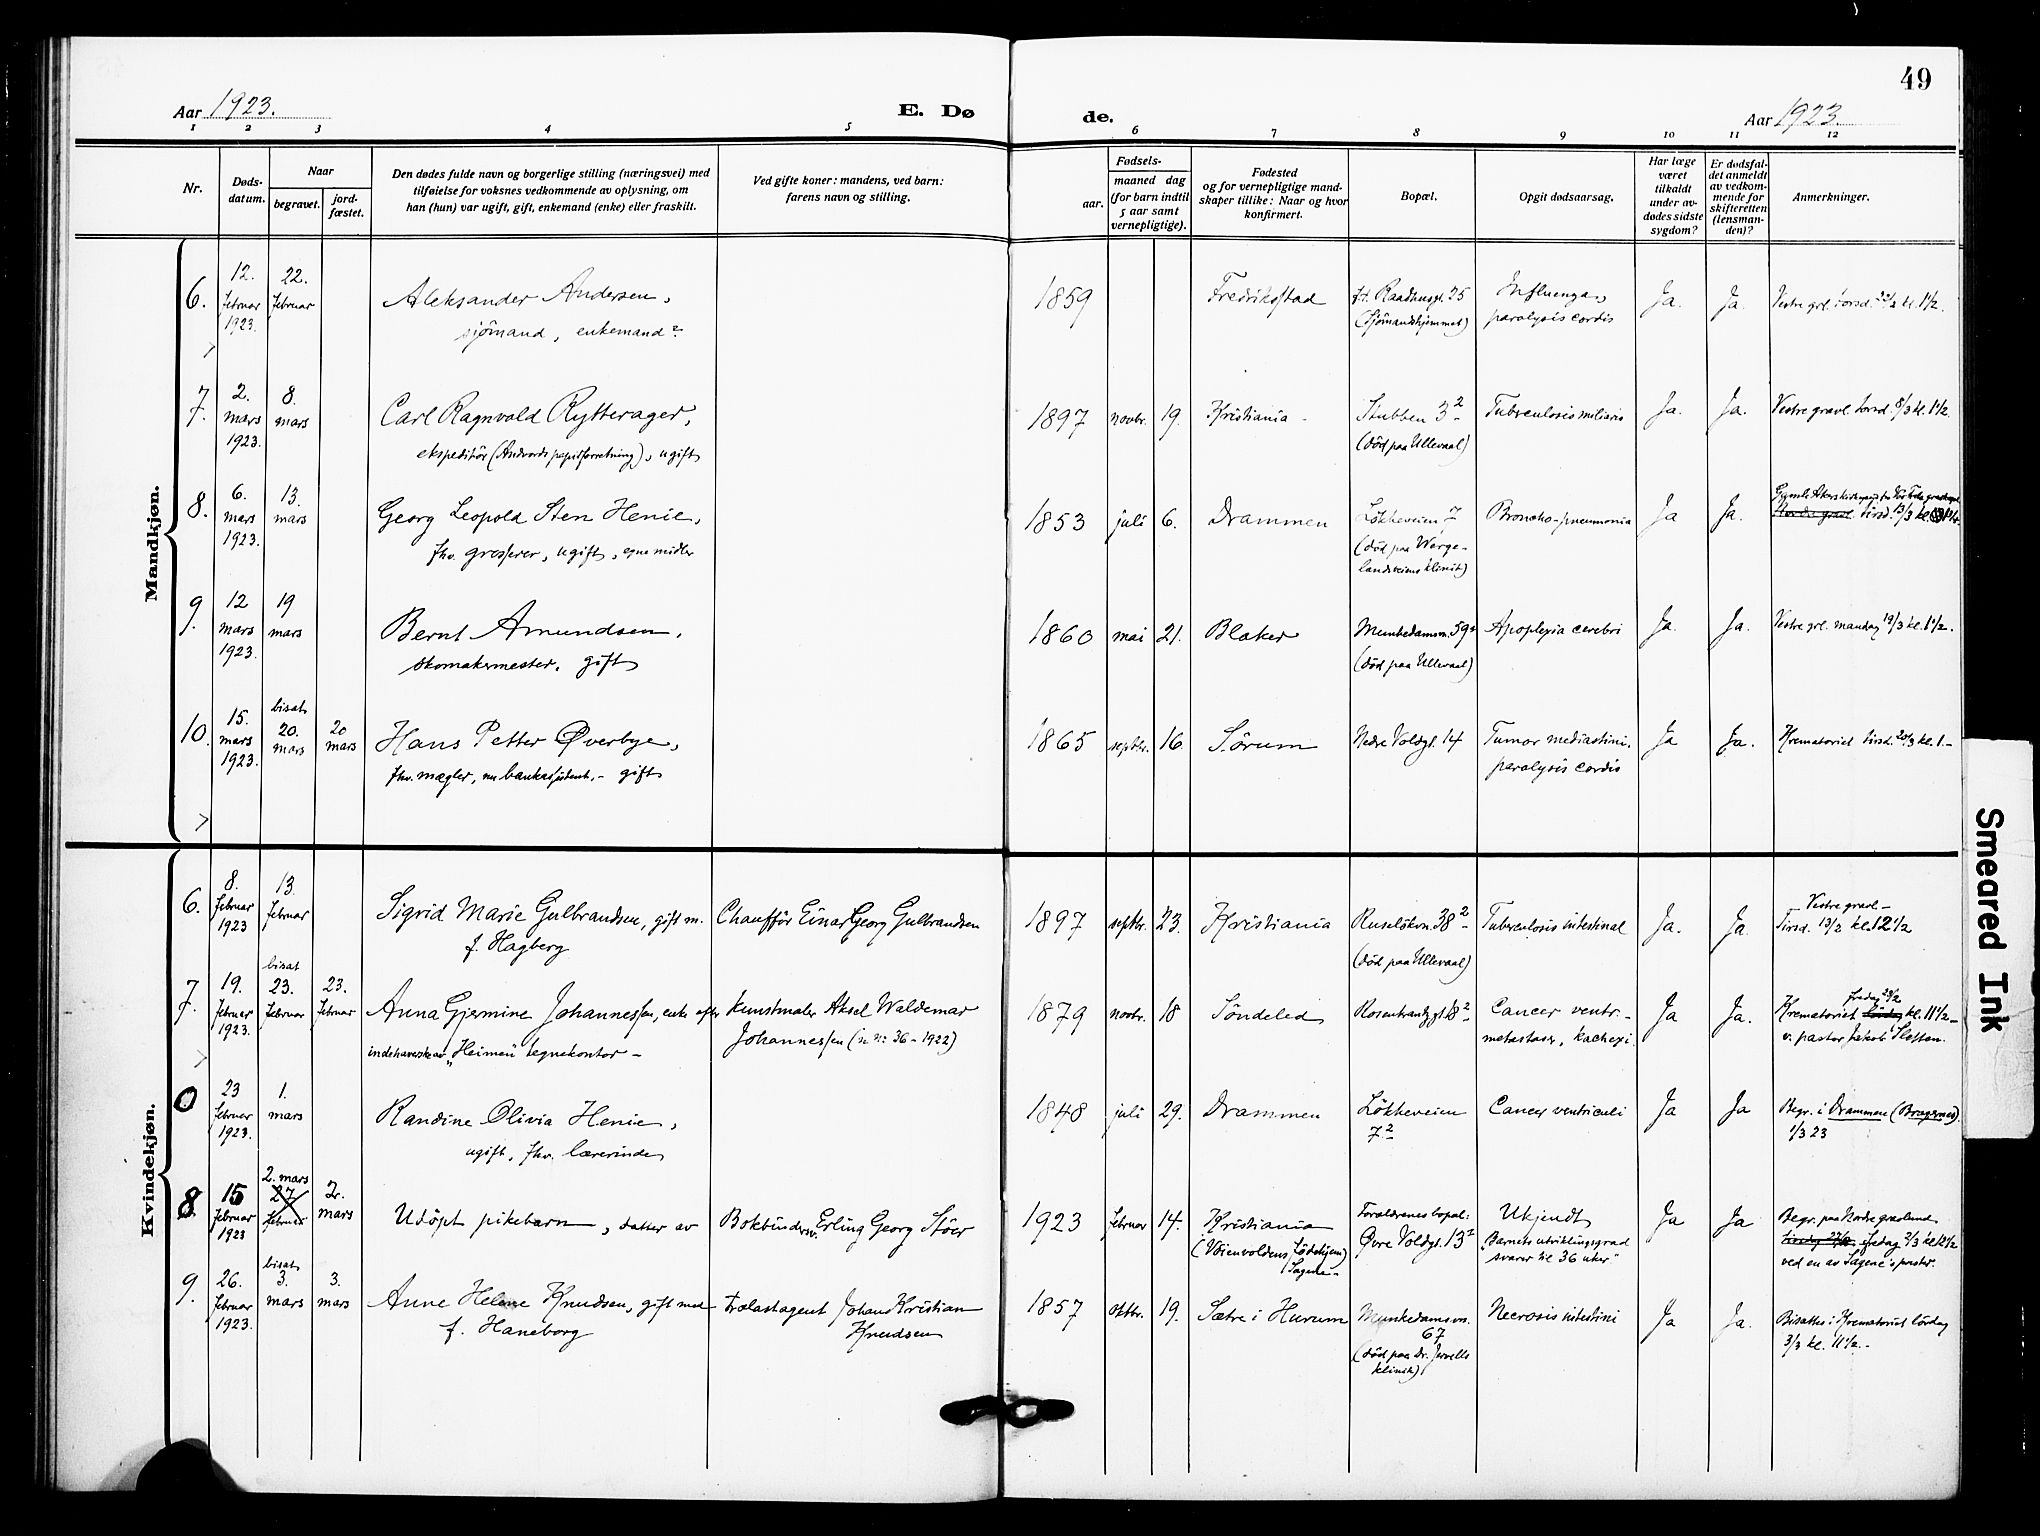 49
Aar 1923.
E. Dø
de.
Aar 1923.
1 2 3 4 5 6 7 8 9 10 11 12
Nr.
Døds-
datum.
Naar
begravet.
jord-
fæstet.
Den dødes fulde navn og borgerlige stilling (næringsvei) med
tilføielse for voksnes vedkommende av oplysning, om
han (hun) var ugift, gift, enkemand (enke) eller fraskilt.
Ved gifte koner: mandens, ved barn:
farens navn og stilling.
Fødsels-
aar.
maaned dag
(for barn indtil
5 aar samt
vernepligtige).
Fødested
og for vernepligtige mand-
skaper tillike: Naar og hvor
konfirmert.
Bopæl.
Opgit dødsaarsag.
Har læge
været
tilkaldt
under av-
dødes sidste
sygdom?
Er dødsfal-
det anmeldt
av vedkom-
mende for
skifteretten
(lensman-
den)?
Anmerkninger.
Mandkjøn.
6.
12.
februar
1923.
22.
februar
Aleksander Andersen,
sjömand, enkemand?
1859
Fredrikstad
f.t. Raadhusgt. 25
(Sjömandshjemmet)
Influenza,
paralysis cordis
Ja.
Ja.
Vestre grl. torsd. 22/2 kl. 1 1/2.
7.
2.
mars
1923.
8.
mars
Carl Ragnvald Rytterager,
ekspeditör (Andvords papirforretning), ugift
1897 novbr. 19.
Kristiania
Stubben 3 2
(död paa Ullevaal)
Tuberculosis miliaris
Ja.
Ja.
Vestre gravl. torsd. 8/3 kl. 1 1/2.
8.
6.
mars
1923.
13.
mars
Georg Leopold Sten Henie,
fhv. grosserer, ugift, egne midler
1853 juli 6.
Drammen
Lökkeveien 7
(död paa Werge-
landsveiens klinik)
Broncho-pneumonia
Ja
Ja.
Nordre gravl. tirsd. 13/3 kl.
9.
12
mars
1923.
19
mars
Bernt Amundsen,
skomakermester, gift
1860 mai 21.
Blaker
Munkedamsvn. 59
(död paa Ullevaal)
Apoplexia cerebri
Ja.
Ja.
Vestre grl. mandag 19/3 kl. 1 1/2.
10.
15.
mars
1923.
bisat
20.
mars
20
mars
Hans Petter Øverbye,
fhv. mægler, nu bankassistent, - gift
1865 septbr. 16.
Sørum
Nedre Voldgt. 14
Tumor mediastini,
paralysis cordis
Ja
Ja.
Krematoriet tirsd. 20/3 kl. 1.-
Kvindekjøn.
6.
8.
februar
1923
13.
februar
Sigrid Marie Gulbrandsen, gift m.
f. Hagberg
Chaufför Einar Georg Gulbrandsen
1897 septbr. 23.
Kristiania
Ruselökvn. 38 2
(död paa Ullevaal)
Tuberculosis intestinal
Ja.
Ja.
Vestre gravl.-
Tirsd. 13/2 kl. 12 1/2
7.
19.
februar
1923.
bisat
23.
februar
23.
februar
Anna Gjermine Johannessen, enke efter
indehaverske av "Heimen" tegnekontor -
kunstmaler Aksel Waldemar
Johannessen (se nr: 36 - 1922)
1879 novbr. 18
Söndeled
Rosenkrantzgt. 8 2
Cancer ventr.-
metastaser, kachexi.
Ja
Ja.
fredag 23/2
Krematoriet lördag kl. 11 1/2 -
v. pastor Jakob Sletten.
0
23
februar
1923.
1.
mars
Randine Olivia Henie,
ugift, fhv. lærerinde
1848 juli 29.
Drammen
Lökkeveien
7 2
Cancer ventriculi
Ja
Ja
Begr. i Drammen (Bragernes)
1/3 23
8.
15
februar
1923
2. mars
27
februar
2.
mars
Udöpt pikebarn, datter av
Bokbindersv. Erling Georg Stöer
1923 februar 14.
Kristiania
(Voienvoldens födehjem)
Sagene-
Forældrenes bopæl:
Øvre Voldgt. 13 2
Ukjendt
"Barnets utviklingsgrad
svarer til 36 uker"
Ja
Ja
Begr. paa Nordre gravlund
tirsdag 27/2 fredag 2/3 kl. 12 1/2
ved en av Sagene's prester.
9.
26.
februar
1923.
bisat
3.
mars
3.
mars
Anne Helene Knudsen, gift med
f. Haneborg
trælastagent Johan Kristian
Knudsen
1857 oktbr. 19.
Sætre i Hurum
Munkedamsvn.
67
(död paa Dr. Jervells
klinik)
Necrosis intestini
Ja
Ja.
Bisattes i Krematoriet lördag
3/3 kl. 11 1/2.-
Smeared Ink